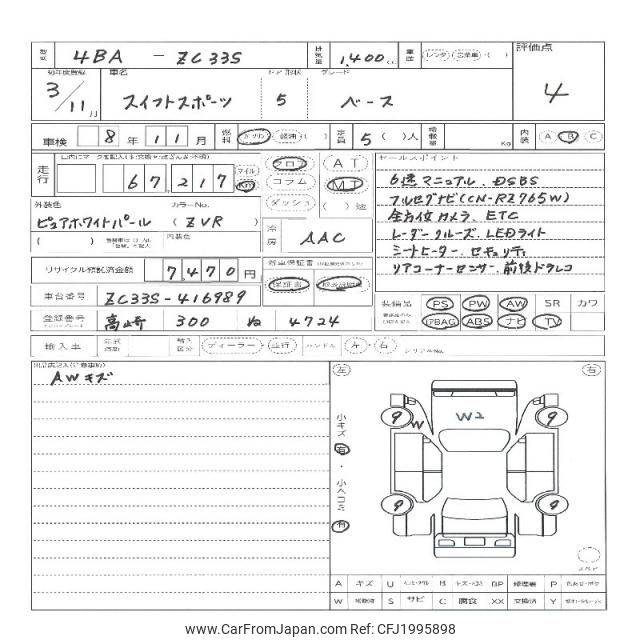 型式 4BA - ZC33S 排気量 1,400 cc 車歴 レンタ 評価点
初年度登録 車名 ドア 形状 グレード
3/11月 スイフトスポーツ 5 ベース 4
車検 8年11月 燃料 ガソリン 軽油 ( ) 定員 5 ( )人 積載量 Kg 内装 A B C
走行 67,217 マイル Km フロア コラム ダッシュ AT MT ( )速 セールスポイント
6速マニュアル、DSBS
外装色 カラーNo. フルセグナビ(CN-RZ765W)
ピュアホワイトパール (ZVR) 全方位カメラ、ETC
内装色 冷房 AAC レーダークルーズ、LEDライト
シートヒーター、セキュリティ
リサイクル預託済金額 7,470円 新車保証書 リアコーナーセンサー、前後ドラレコ
車台番号 ZC33S-416989 保証書 取扱説明書 装備品 PS PW AW SR カワ
登録番号 高崎 300 ぬ 4724 AIRBAG ABS ナビ TV
輸入車 年式 輸入区分 ディーラー 並行 ハンドル 左・右 シリアルNo.
AWキズ
左 右
小キズ 有・小ヘコミ 有
9 W W2 9
9 9
スペア
A キズ U B BP 修理跡 P
W S サビ C 腐食 XX 交換済 Y
www.CarFromJapan.com ID:CFJ1995898